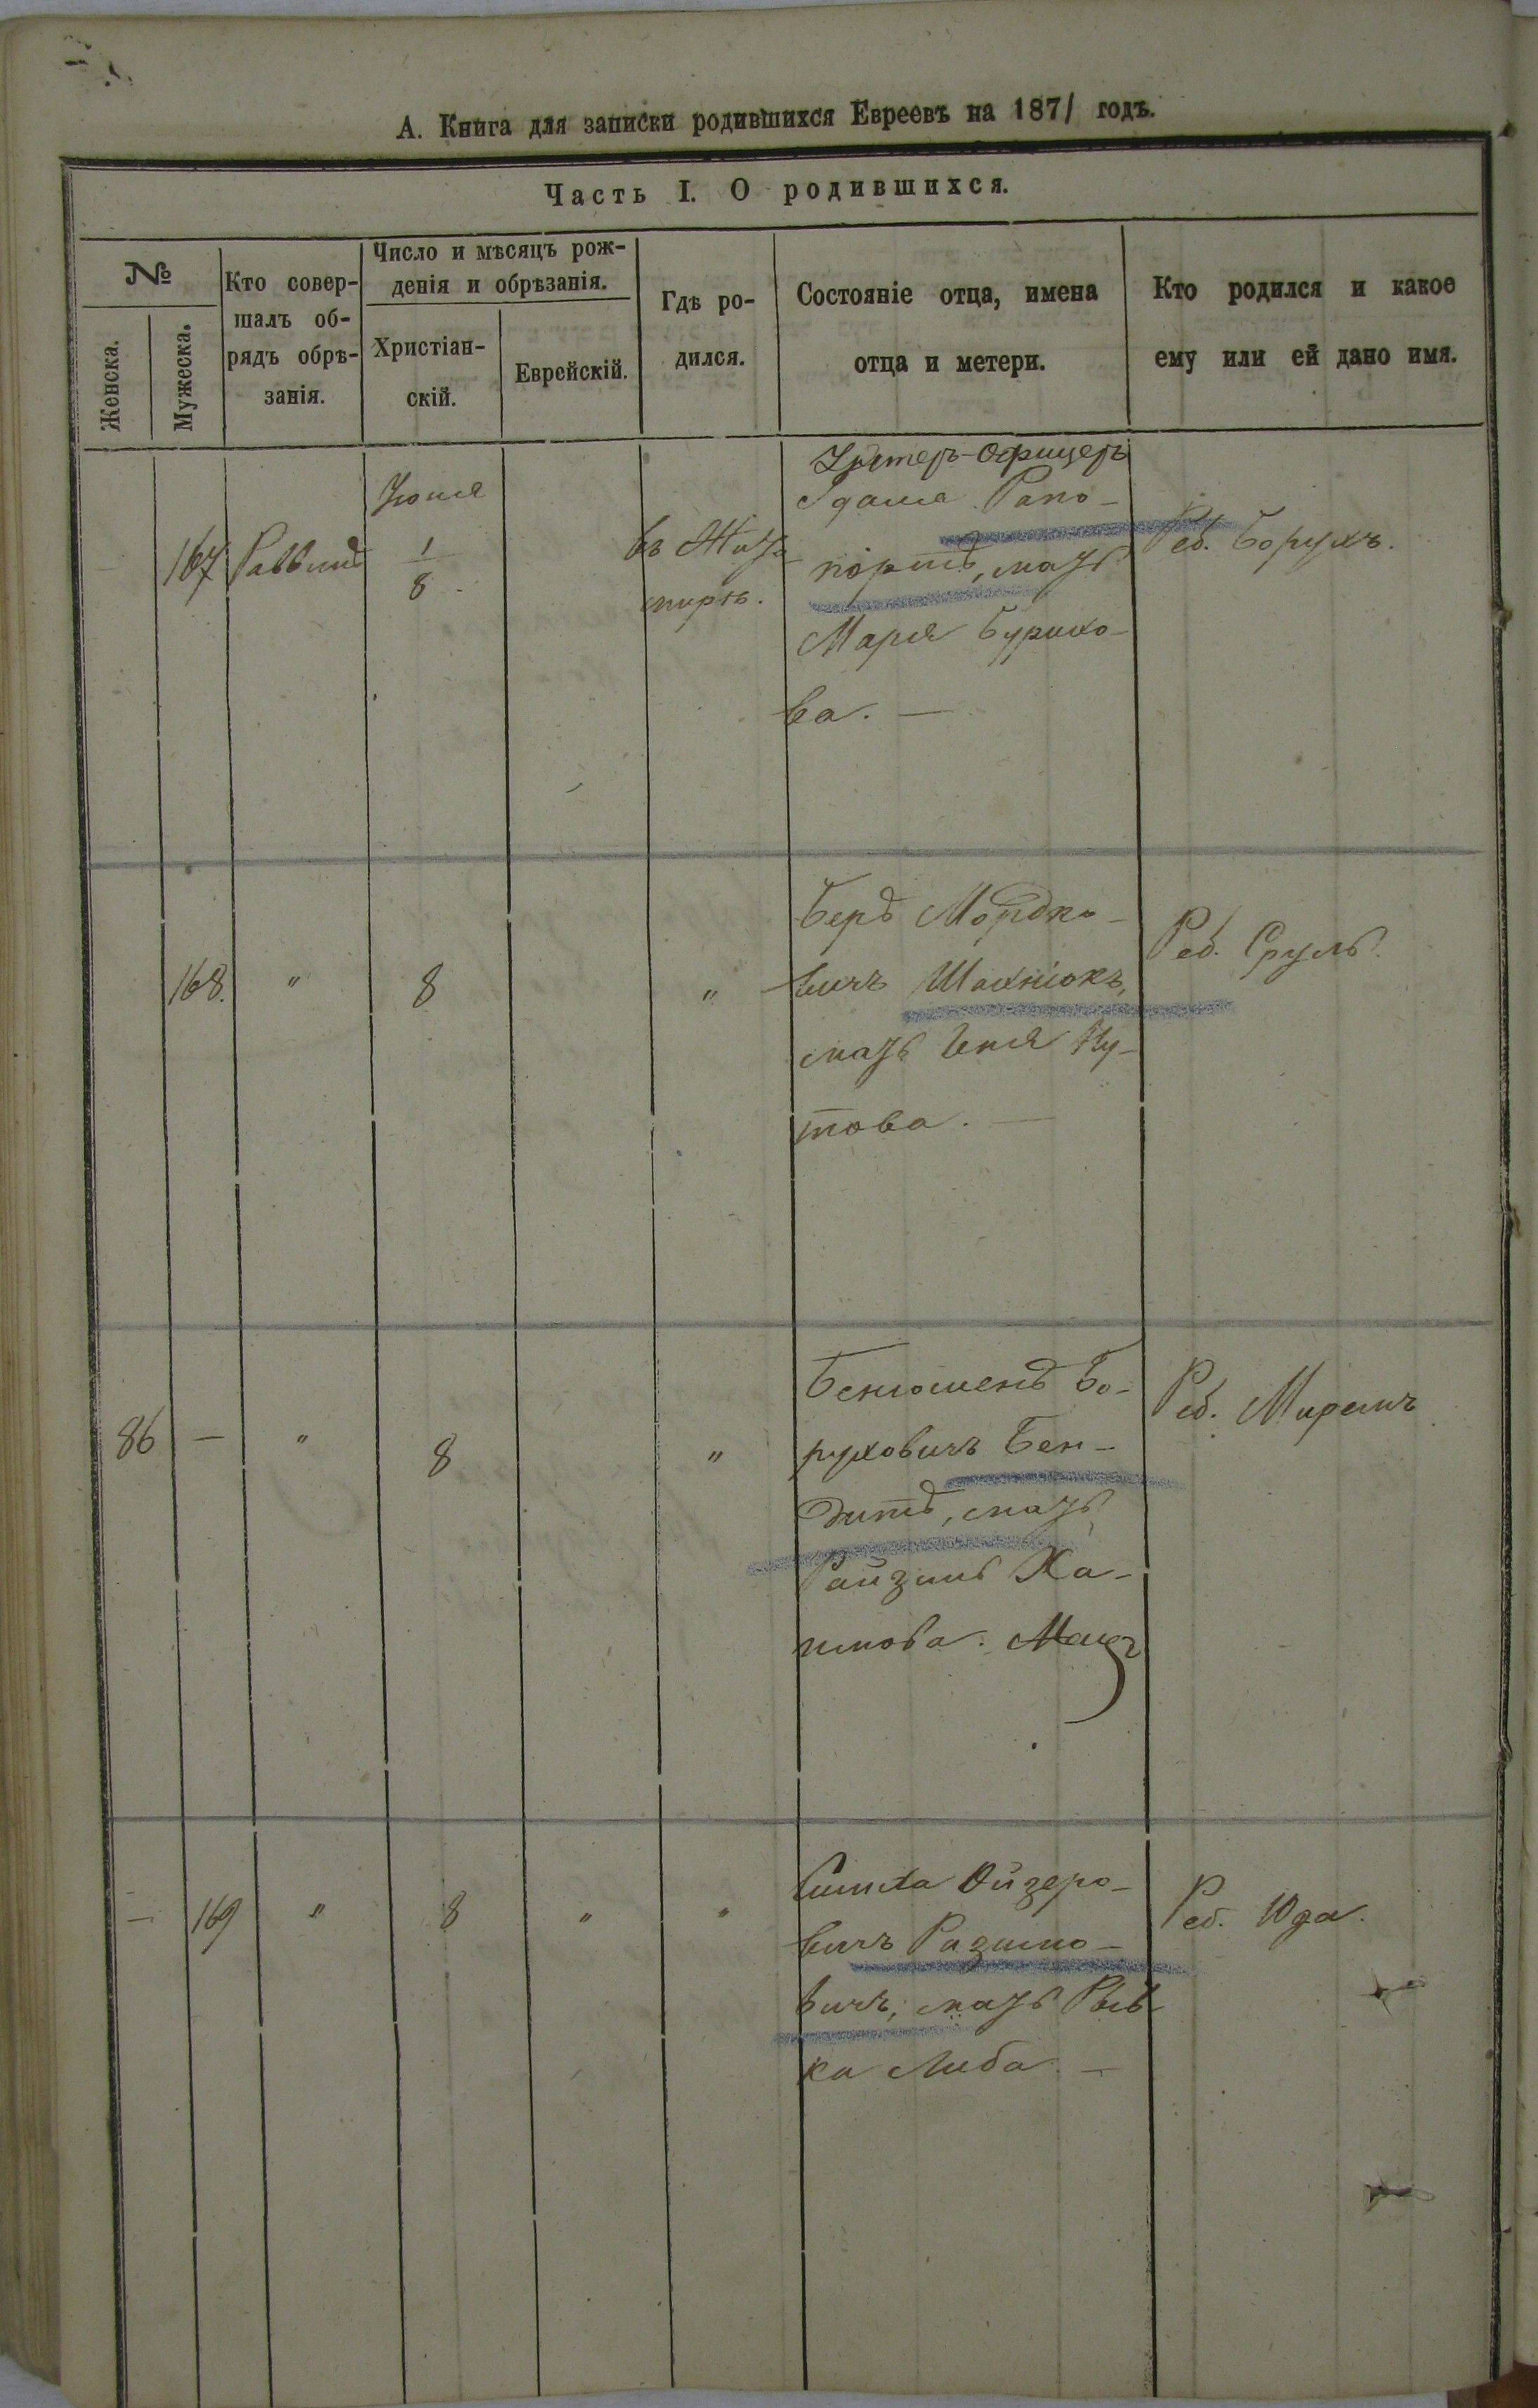 А. Книга для записки родившихся Евреевъ на 1871 годъ.
Часть I. О родившихся.
№
Женска.
Мужеска.
Кто совер-
шалъ об-
рядъ обрѣ-
занія.
Число и мѣсяцъ рож-
денія и обрѣзанія.
Христіан-
скій.
Еврейскій.
Гдѣ ро-
дился.
Состояніе отца, имена
отца и метери.
Кто родился и какое
ему или ей дано имя.
167
Раввинъ
1
8
въ
Унтеръ-Офицеръ
Рапо-
портъ, мать
Марія Бурихо-
ва. —
Реб. Борухъ.
168.
"
8
"
Беръ Мордко-
вичъ Шахнюкъ,
мать Ну-
това. —
Реб. Сруль.
86
—
"
8
"
Бенюменъ Бо-
руховичъ Бен-
дитъ, мать
Райзинь Ха-
имова.
Реб. Миремъ
—
169
"
8
"
"
Симха Ойзеро-
вичъ Разимо-
вичъ, мать Рыв
ка Либа. —
Реб. Юда.